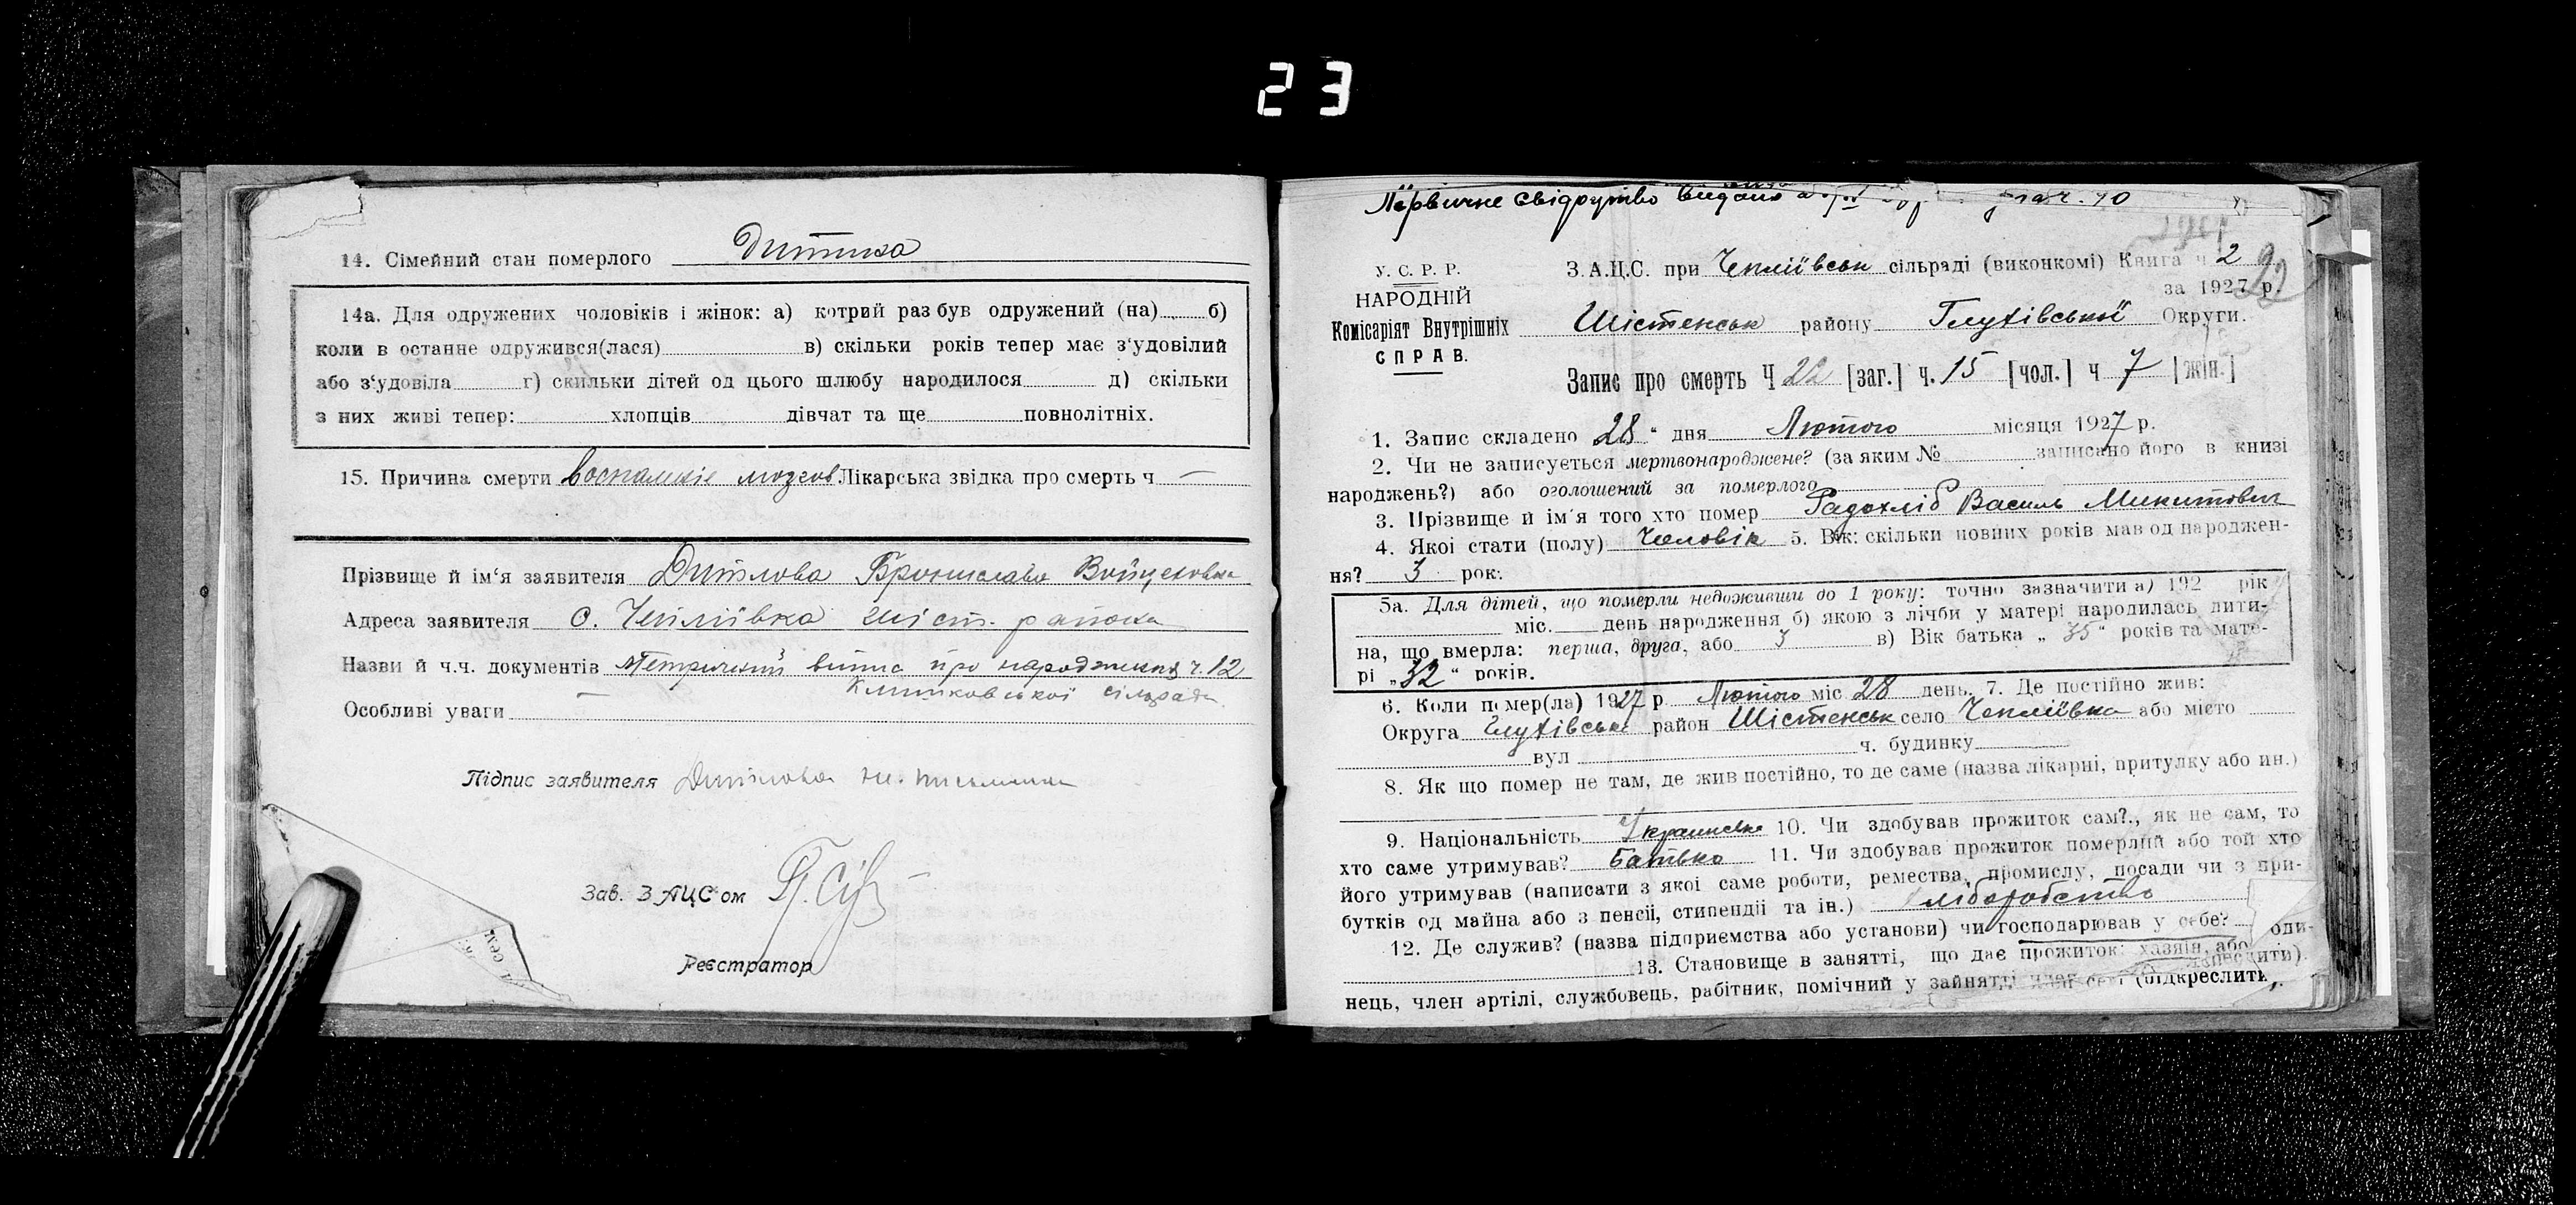 23
14. Сімейний стан померлого Дитина
14а. Для одружених чоловіків і жінок: а) котрий раз був одружений (на) б)
коли в останне одружився(лася) в) скільки років тепер має з'удовілий
або з'удовіла г) скильки дітей од цього шлюбу народилося д) скільки
з них живі тепер: хлопців дівчат та ще повнолітніх.
15. Причина смерти воспаление мозгов Лікарська звідка про смерть ч —
Прізвище й ім'я заявителя Бронислава
Адреса заявителя с. Чепліївка Шіст. района
Назви й ч.ч. документів про народження ч. 12
сільради
Особливі уваги —
Підпис заявителя
Зав. ЗАЦСом
Реєстратор
Первичне свідоцтво видано
У. С. Р. Р.
НАРОДНІЙ
Комісаріят Внутрішніх
СПРАВ.
З.А.Ц.С. при Чепліївськ сільраді (виконкомі) Книга ч 2
22
за 1927 р.
Шістенськ району Глухівської Округи.
Запис про смерть Ч 22 [заг.] ч. 15 [чол.] ч 7 [жін.]
1. Запис складено 28 " дня Лютого місяця 1927 р.
2. Чи не записується мертвонароджене? (за яким № записано його в книзі
народжень?) або оголошений за померлого
3. Прізвище й ім'я того хто помер Радохліб Василь Микитович
4. Якоі стати (полу) Человік 5. Вік: скільки повних років мав од народжен-
ня? 3 рок.
5а. Для дітей, що померли недоживши до 1 року: точно зазначити а) 192 рік
міс. день народження б) якою з лічби у матері народилась дити-
на, що вмерла: перша, друга, або 3 в) Вік батька „ 35 " років та мате-
рі „ 32 " років.
6. Коли помер(ла) 1927 р Лютого міс 28 день. 7. Де постійно жив:
Округа Глухівськ район Шістенськ село Чепліївка або місто
вул ч. будинку
8. Як що помер не там, де жив постійно, то де саме (назва лікарні, притулку або ин.)
9. Національність 10. Чи здобував прожиток сам?., як не сам, то
хто саме утримував? Батько 11. Чи здобував прожиток померлий або той хто
його утримував (написати з якоі саме роботи, ремества, промислу, посади чи з при-
бутків од майна або з пенсіі, стипендіі та ін.) хліборобство
12. Де служив? (назва підприємства або установи) чи господарював у себе?
13. Становище в занятті, що дає прожиток: хазяін, або оди-
нець, член артілі, службовець, рабітник, помічний у зайнятті (підкреслить).